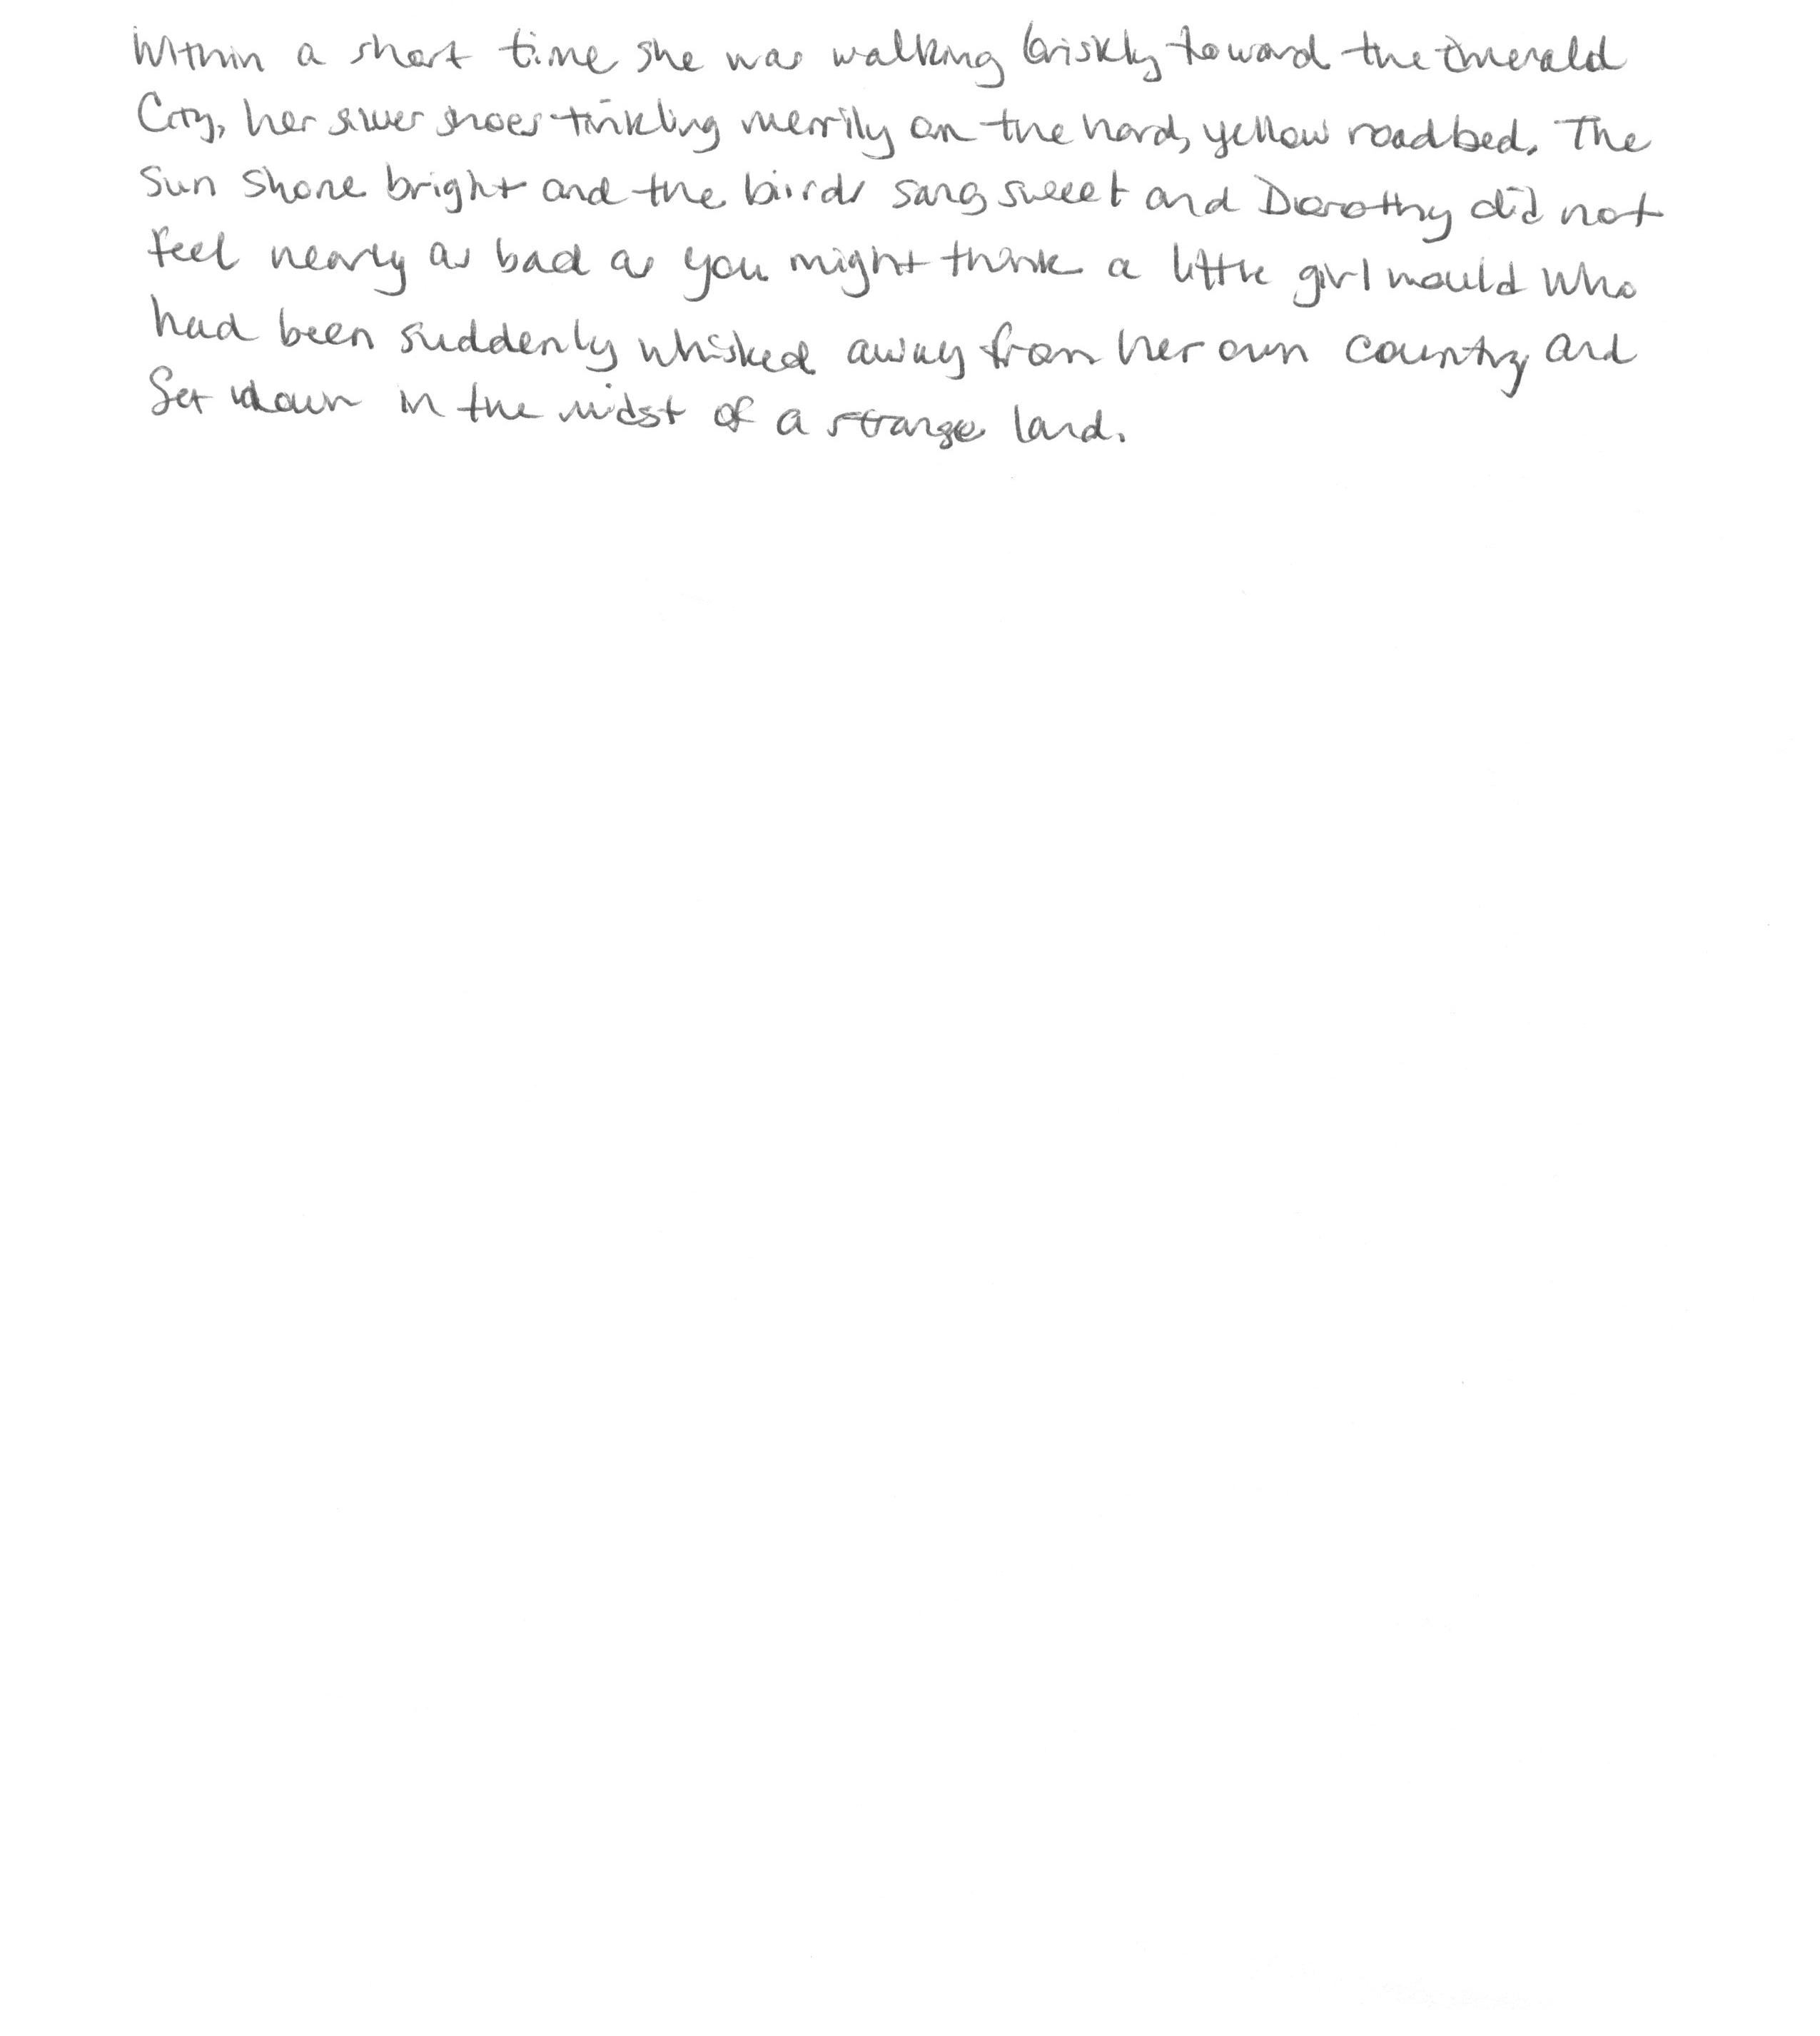 Within a short time she was walking briskly toward the Emerald
City, her silver shoes tinkling merrily on the hard, yellow roadbed. The
sun shone bright and the birds sang sweet and Dorothy did not
feel nearly as bad as you might think a little girl would who
had been suddenly whisked away from her own country and
set down in the midst of a strange land.